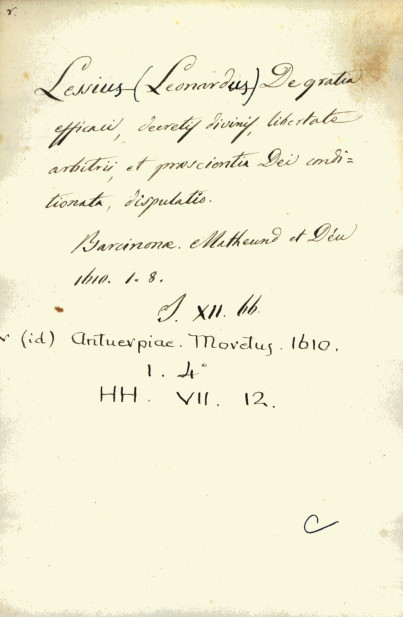 r.
Lessius (Leonardus) De gratia
efficaci, decretis divinis, libertate
arbitrii, et præscientia Dei condi=
tionata, disputatio.
Barcinonæ. Matheuad et Déu
1610. 1. 8.
J. XII. 66.
(id) Antuerpiae. Moretus. 1610.
1. 4º
HH. VII. 12.
C